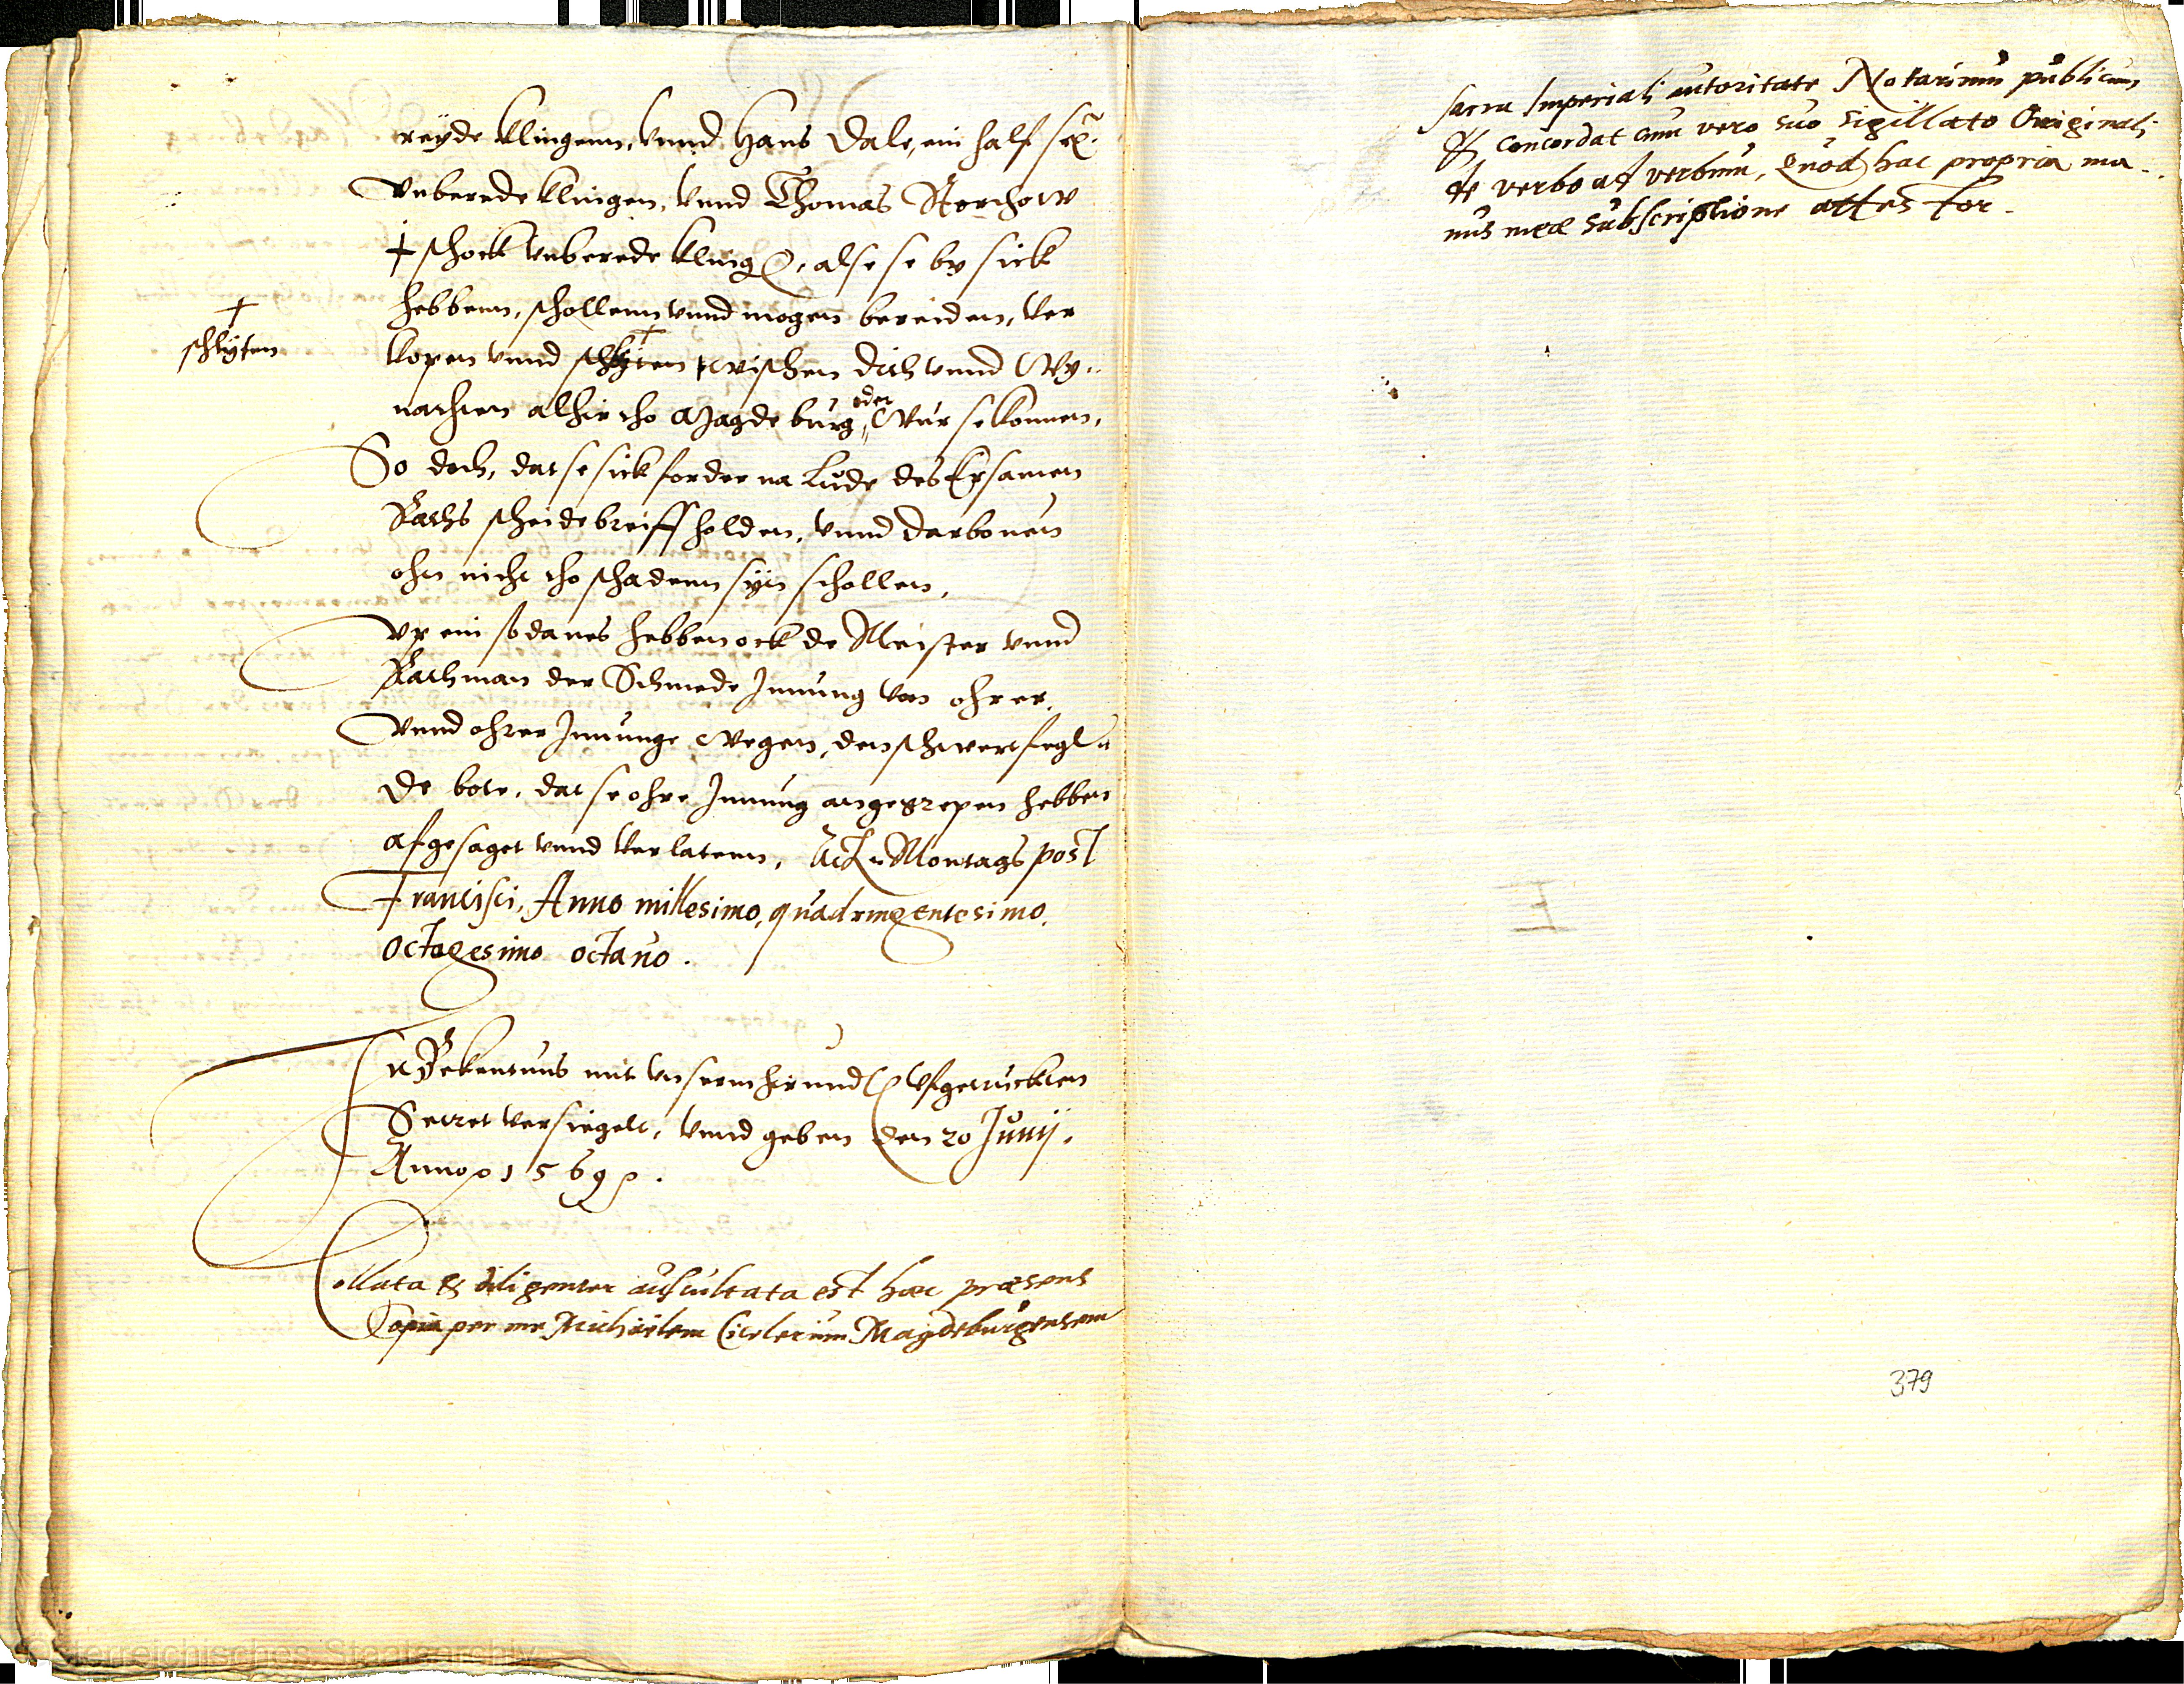 reyde klingenn, vnnd Hans Dale, ein half sex.
vnberede klingen, vnnd Thomas Storchow
† schock vnberede kling, alse se by sick
hebbenn, schollenn vnnd mogen bereiden, ver
†
schlyten
kopen vnnd schlyten twischen dith vnnd Wy-
nachten alhir tho Magdeburg, oder Wur se konnen,
So doch, dat se sick forder na Lude des Ersamen
Raths scheidebreiff holden, vnnd darbouen
ohn nicht tho schadenn syn schollen,
Vp ein sodanes hebben ock de Meister vnnd
Rathman der Schmede Innung van ohrer,
vnnd ohrer Innunge wegen, den schwertfegl
de bote, dat se ohre Innung angegrepen hebben
afgesaget vnnd verlatenn, Act Montags post
Francisci, Anno millesimo, quadringentesimo,
Octogesimo octauo.
In Bekentnus mit vnserm hir vnnd Vfgetruckten
Secret versiegelt, vnnd geben den 20 Junij.
Anno 1569.
Collata & diligenter auscultata est haec praesens
Copia per me Michaelem Magdeburgensem
sacra Imperiali autoritate Notarium publicum,
& concordat cum vero suo sigillato Originali
de verbo ad verbum, Quod hac propria ma-
nus meae subscriptione attestor.
379
Österreichisches Staatsarchiv